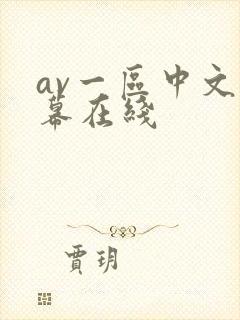 av一區中文
幕在綫
賈玥